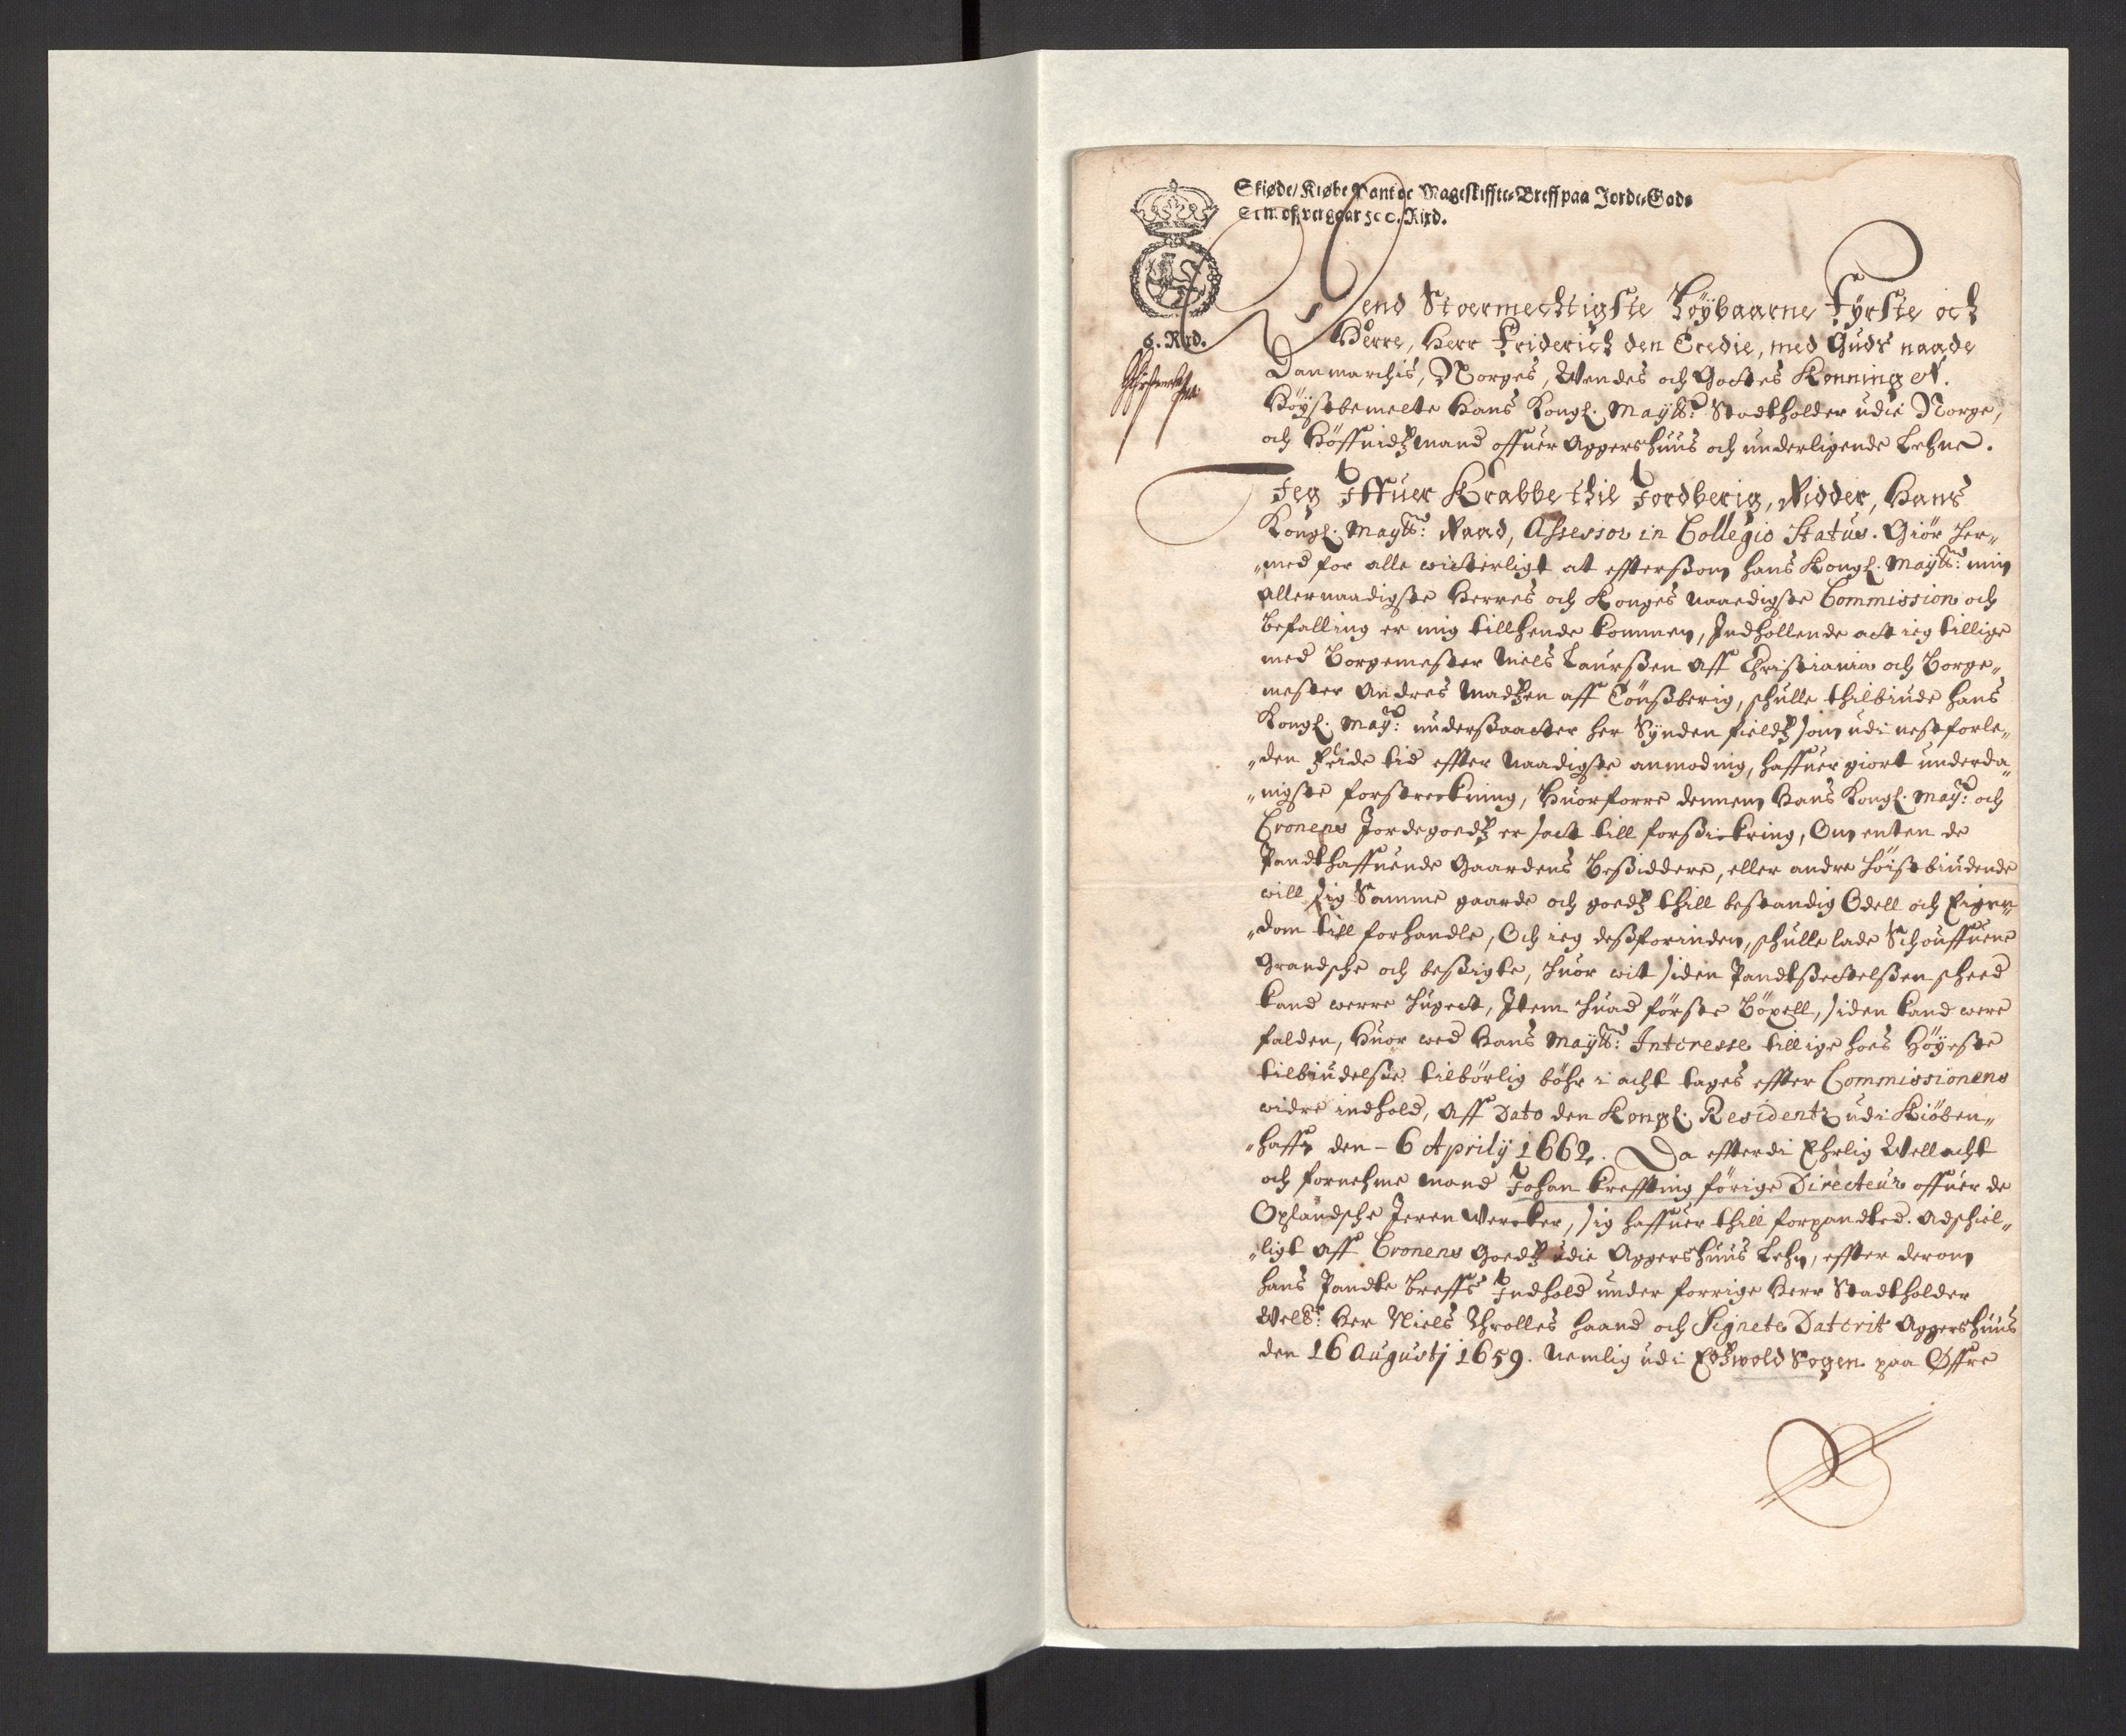 Skiøde/Kiøbe Pant oc Mageskiffte-Breff paa Jorde-Gods
Som ofvergaar 500. Rixd.
6. Rixd.
Dend Stoermechtigste Høÿbaarne Fÿrste och
Herre, Herr Friderich den Tredie, med Guds naade
Danmarchis, Norges, Wendes och Gottes Konning etc.
Høÿstbemelte Hans Kongl. Maÿtts: Stadtholder udi Norge,
och Høffuidtzmand offuer Aggershuus och underligende Lehne.
Jeg Iffuer Krabbe thil Jordberig, Ridder, Hans
Kongl. Maÿtts: Raad, Assessor in Collegio Status. Giør her„
„med for alle witterligt at efftersom hans Kongl. Maÿtts: min
allernaadigste Herres och Konges naaedigste Commission och
befalling er mig tillhende kommen, Indhollende att ieg tillige
med Borgemester Niels Laurssen aff Christiania och Borge„
mester Andres Madtzen aff Tønßberig, schulle thilbiude hans
Kongl. Maÿ: underßaatter her Sÿnden fieldtz som udi nestforle„
„den feide tid effter naadigste anmoding, haffuer giort underda„
„nigste forstreckning, Huorforre dennem Hans Kongl. Maÿ: och
Cronens Jordegoedtz er satt till forßickring, Om enten de
Pandthaffuende Gaardens Beßiddere, eller andre høistbiudende
will sig Samme gaarde och goedtz thill bestandig Odell och Eigen„
„dom till forhandle, Och ieg deßforinden, schulle lade Schouffuene
Grandsche och beßigte, huor wit siden Pandtßettelßen scheed
kand werre hugect, Item huad første Bøxell, siden kand were
falden, Huor wed Hans Maÿtts: Interesse tillige hoes Høÿeste
tilbiudelße tilbørlig bøhr i acht tages effter Commissionens
widre indhold, aff Dato den Kongl. Residentz udi Kiøben„
„haffn den - 6 Aprilÿ 1662. Da effterdi Ehrlig Wellacht
och fornehme mand Johan Kreffting førige Directeur offuer de
Oplandsche Jeren Wercker, sig haffuer thill forpandted. Adschiel„
„ligt aff Cronens Goedtz udi Aggershuus Lehn, effter derom
hans Pandte breffs Indhold under forrige Herr Stadtholder
Welb: Her Niels Throlles haand och Signete Daterit Aggershuus
den 16 Augustj 1659. Nemlig udi Edtzwold Sogen paa Øffre